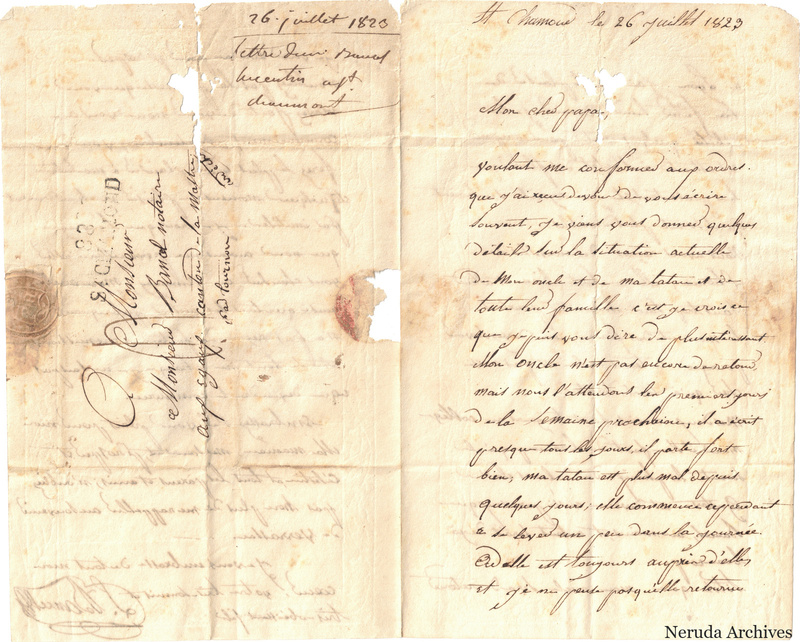 26. juillet 1823
lettre
chaumont
88
ST CHAMOND
A Monsieur
Monsieur notaire
aux canton de la
par tournon
St Chamond le 26 juillet 1823
Mon cher papa,
voulant me conformer aux ordres
que j'ai recus de vous de vous écrire
souvent, je viens vous donner quelques
détails sur la situation actuelle
de Mon oncle et de ma tatan et de
toute leur famille c'est je crois ce
que je puis vous dire de plus interessant
Mon oncle n'est pas encore de retour
mais nous l'attendons les premiers jours
de la semaine prochaine, il a écrit
presque tous les jours, il porte fort
bien, ma tatan est plus mal depuis
quelques jours; elle commence cependant
a se lever un peu dans la journée.
est toujours auprès d'elle
et je ne pense pas qu'elle retourne
Neruda Archives